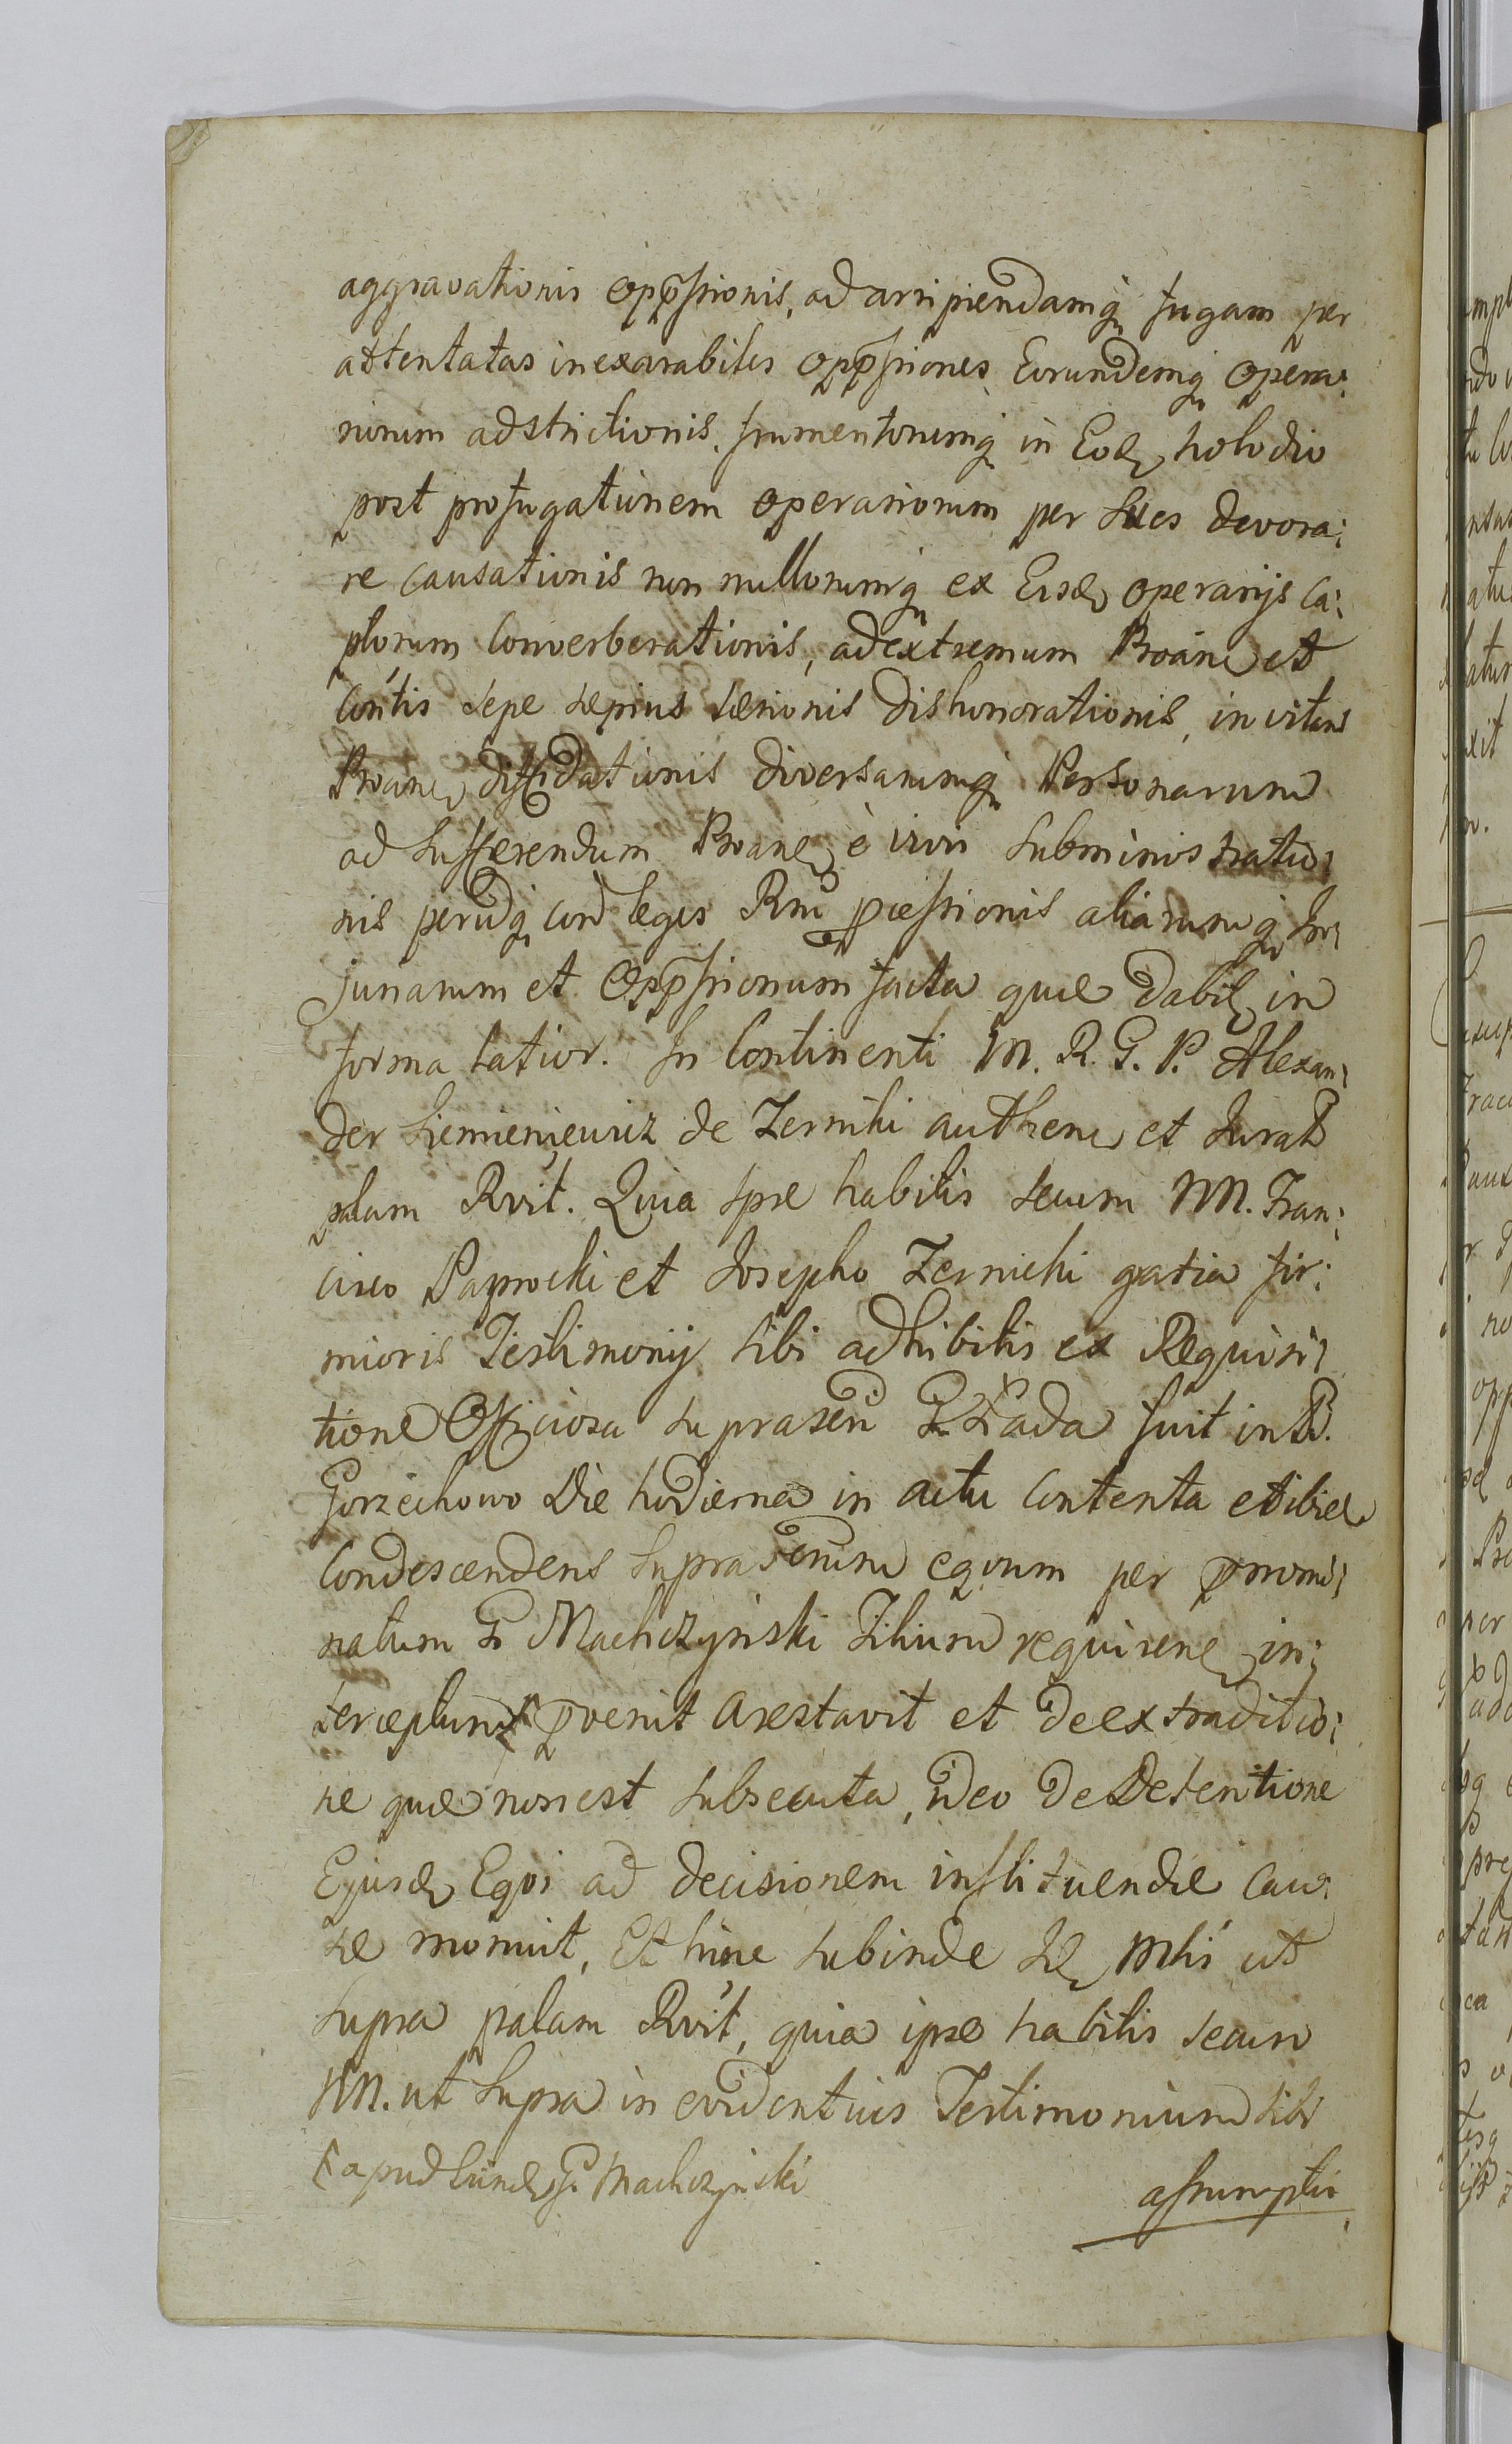 aggravationis opp̄ssionis, ad arripiendamq fugam per
attentatas inexarabiles opp̄ssiones Eorundemq opera:
riorum adstrictionis, frumentorumq in Eod holodio
post profugationem operariorum per sues devora:
re causationis non nullorumq ex Eisd operarijs ca:
ptorum Converberationis, ad extremum Proāne et
Cōntis sepe sepius læsionis dishonorationis, in vitam
Proāne diffidationis diversarumq Personarum
ad sufferendum Proane è vivis subministratio:
nis perindeq cond leges Rni præssionis aliarumq In:
juriarum et Opp̄ssionum facta quæ dabit in
forma latior. In Continenti M. R. G. P. Alexan:
der Siemieniewicz de Zerniki authen et Jurat
palam Rvit. Quia Ipse habilis secum NN. Fran:
cisco Paprocki et Josepho Zernicki gratia fir:
mioris Testimonij sibi adhibitis ex Requisi:
tione Officiosa suprasen̄ G. Łada fuit in B.
Gorzechowo Die hodierna in actu Contenta et ibid
Condescendens supraserium equum per prnomi:
natum G Machczynski Filium requirene in:
terceptum ⨯ pvenit arestavit et de extraditio:
ne quæ non est subsecuta, ideo de Detentione
Ejusd Eqvi ad decisionem instituendæ Cau:
sæ monuit, Et hinc subinde Id Mlis ut
supra palam Rvit, quia ipse habilis secum
NN. ut supra in evidentius Testimonium sibi
⨯ apud Eund G. Machczynski
assumptis